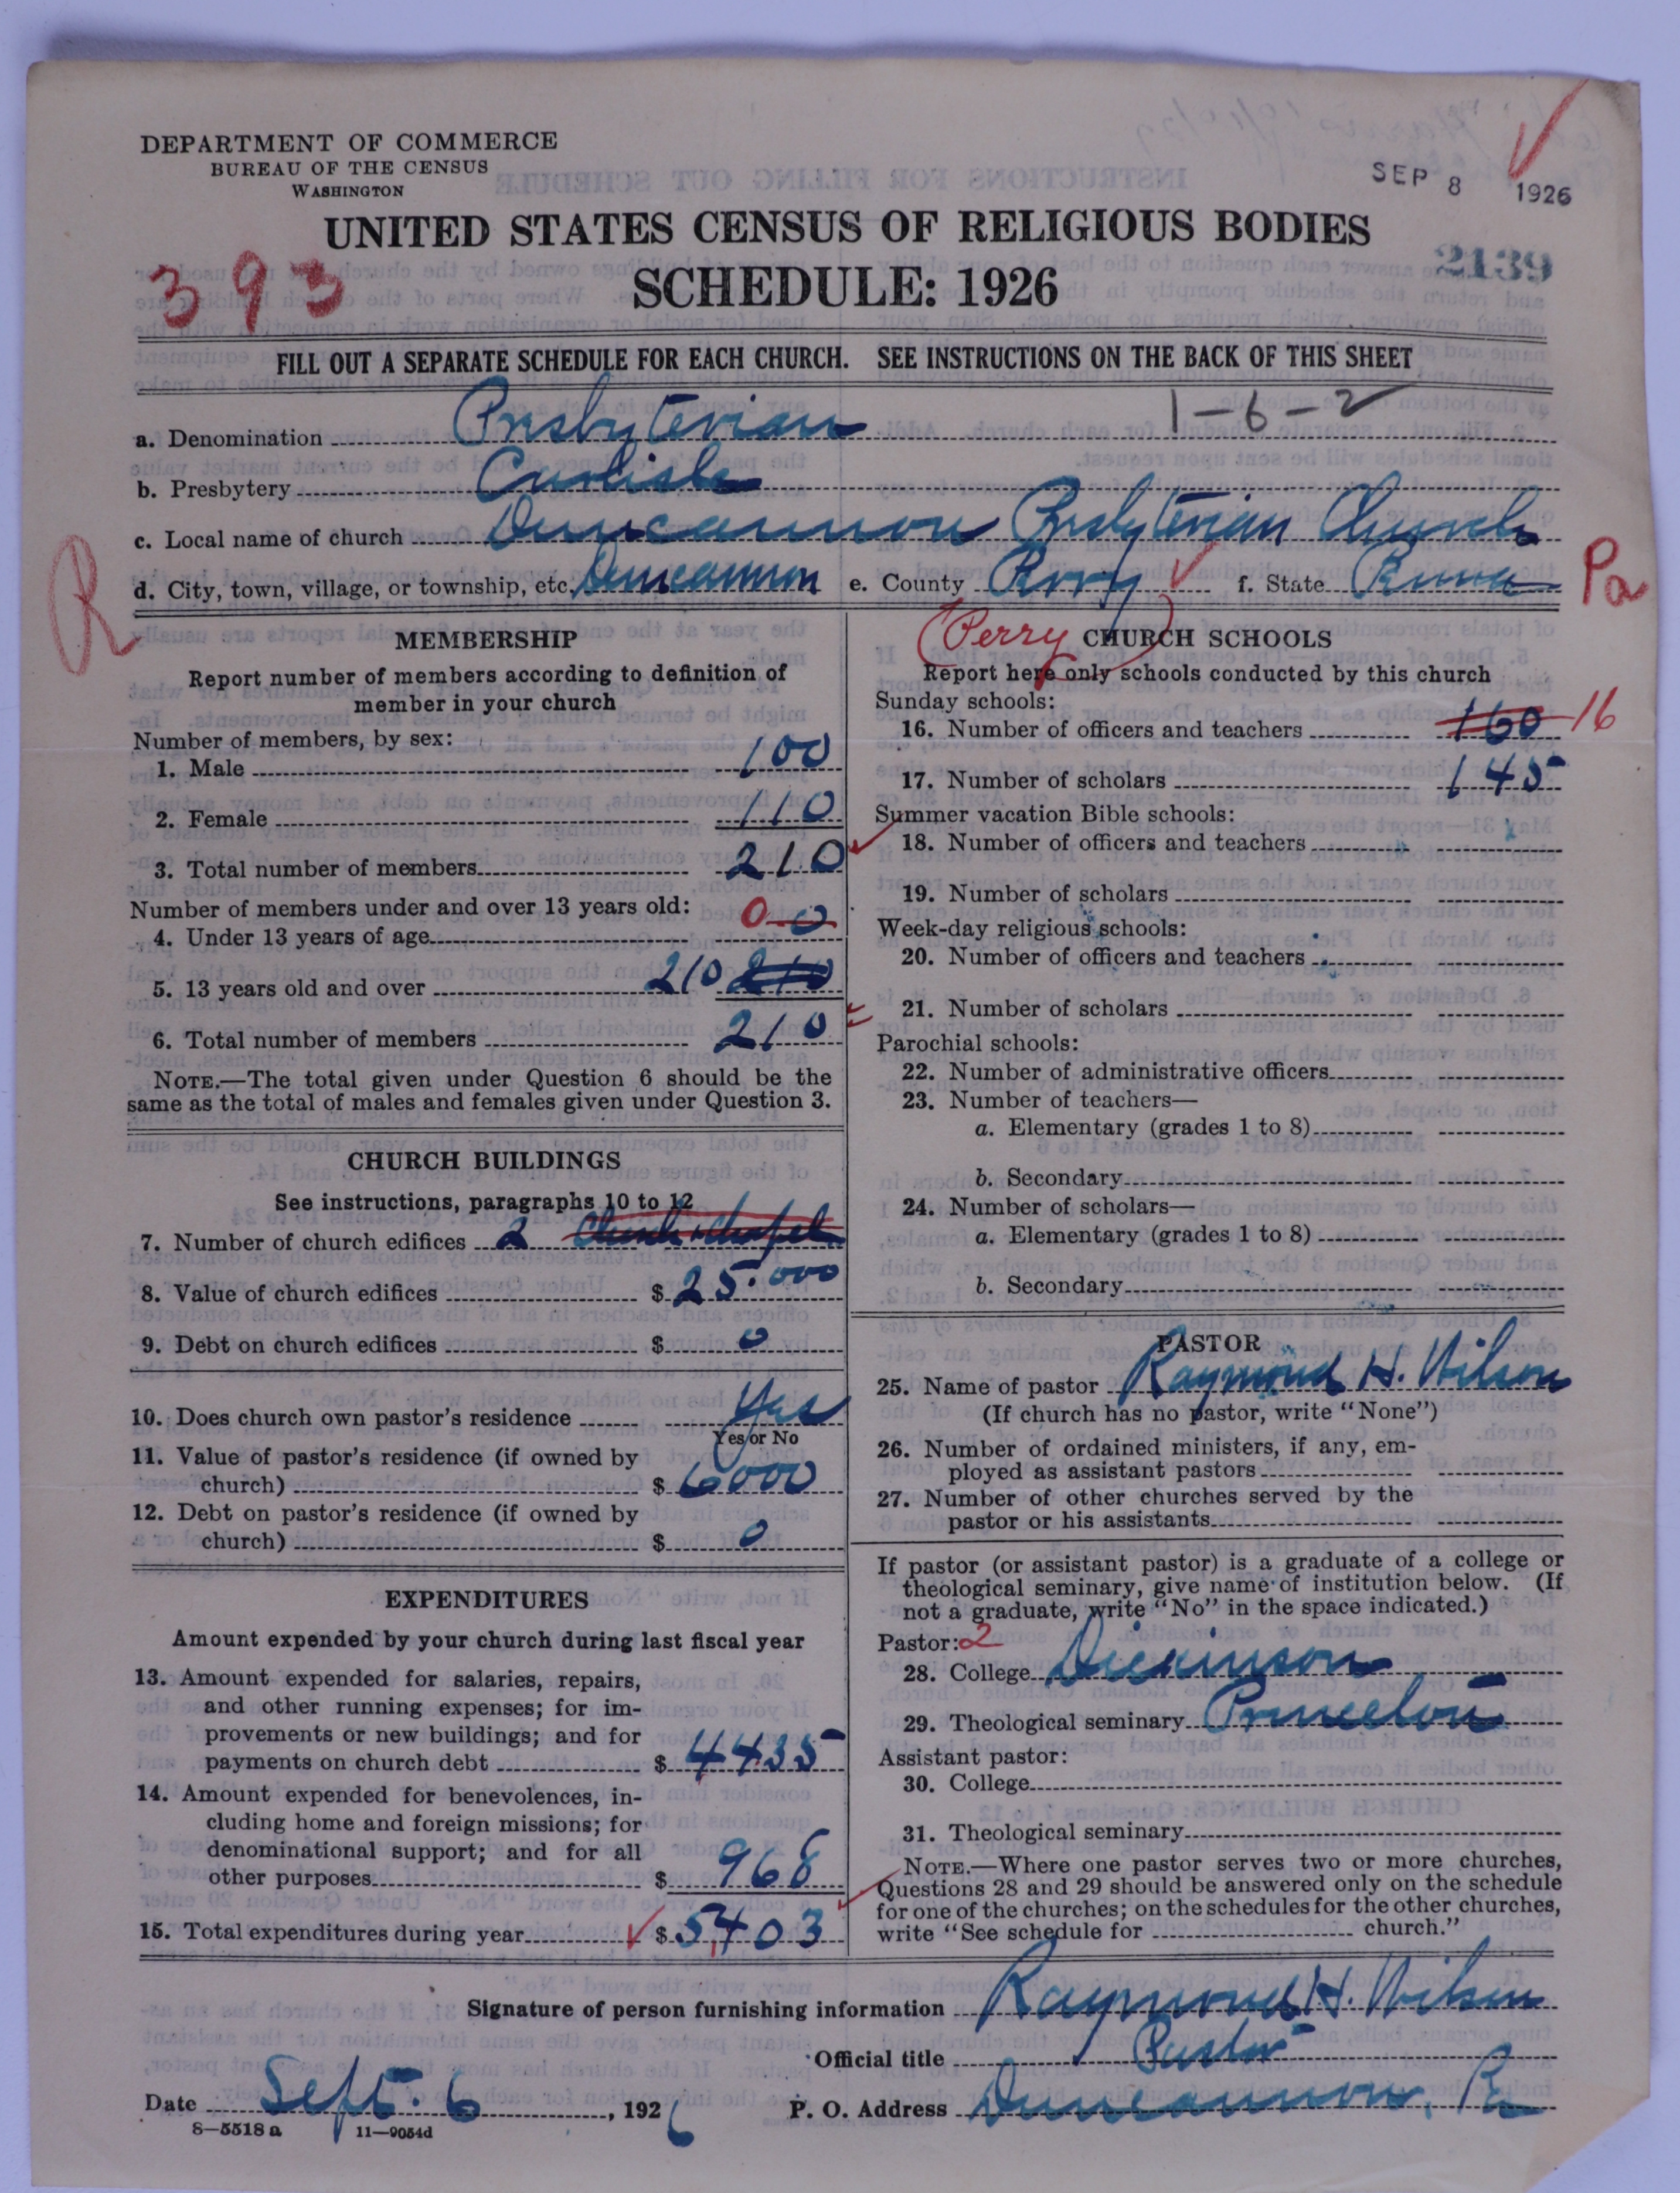 DEPARTMENT OF COMMERCE
BUREAU OF THE CENSUS
WASHINGTON
SEP 8 1926
UNITED STATES CENSUS OF RELIGIOUS BODIES
2139
393
SCHEDULE: 1926
FILL OUT A SEPARATE SCHEDULE FOR EACH CHURCH. SEE INSTRUCTIONS ON THE BACK OF THIS SHEET
1-6-2
a. Denomination Presbyterian
b. Presbytery Carlisle
c. Local name of church Duncannon Presbyterian Church
R
d. City, town, village, or township, etc. Duncannon e. County Perry f. State Penna Pa
MEMBERSHIP
Report number of members according to definition of
member in your church
Number of members, by sex:
1. Male 100
2. Female 110
3. Total number of members 210
Number of members under and over 13 years old:
4. Under 13 years of age 0 0
5. 13 years old and over 210 210
6. Total number of members 210
NOTE.—The total given under Question 6 should be the
same as the total of males and females given under Question 3.
CHURCH BUILDINGS
See instructions, paragraphs 10 to 12
7. Number of church edifices 2 Church & Chapel
8. Value of church edifices $ 25.000
9. Debt on church edifices $ 0
10. Does church own pastor's residence Yes
Yes or No
11. Value of pastor's residence (if owned by
church) $ 6000
12. Debt on pastor's residence (if owned by
church) $ 0
EXPENDITURES
Amount expended by your church during last fiscal year
13. Amount expended for salaries, repairs,
and other running expenses; for im-
provements or new buildings; and for
payments on church debt $ 4435
14. Amount expended for benevolences, in-
cluding home and foreign missions; for
denominational support; and for all
other purposes $ 968
15. Total expenditures during year $ 5,403
(Perry) CHURCH SCHOOLS
Report here only schools conducted by this church
Sunday schools:
16. Number of officers and teachers 160 16
17. Number of scholars 145
Summer vacation Bible schools:
18. Number of officers and teachers
19. Number of scholars
Week-day religious schools:
20. Number of officers and teachers
21. Number of scholars
Parochial schools:
22. Number of administrative officers
23. Number of teachers—
a. Elementary (grades 1 to 8)
b. Secondary
24. Number of scholars—
a. Elementary (grades 1 to 8)
b. Secondary
PASTOR
25. Name of pastor Raymond H. Wilson
(If church has no pastor, write "None")
26. Number of ordained ministers, if any, em-
ployed as assistant pastors
27. Number of other churches served by the
pastor or his assistants
If pastor (or assistant pastor) is a graduate of a college or
theological seminary, give name of institution below. (If
not a graduate, write "No" in the space indicated.)
Pastor: 2
28. College Dickinson
29. Theological seminary Princeton
Assistant pastor:
30. College
31. Theological seminary
NOTE.—Where one pastor serves two or more churches,
Questions 28 and 29 should be answered only on the schedule
for one of the churches; on the schedules for the other churches,
write "See schedule for church."
Signature of person furnishing information Raymond H. Wilson
Official title Pastor
Date Sept. 6, 1926 P. O. Address Duncannon, Pa
8—5518 a 11—9054d